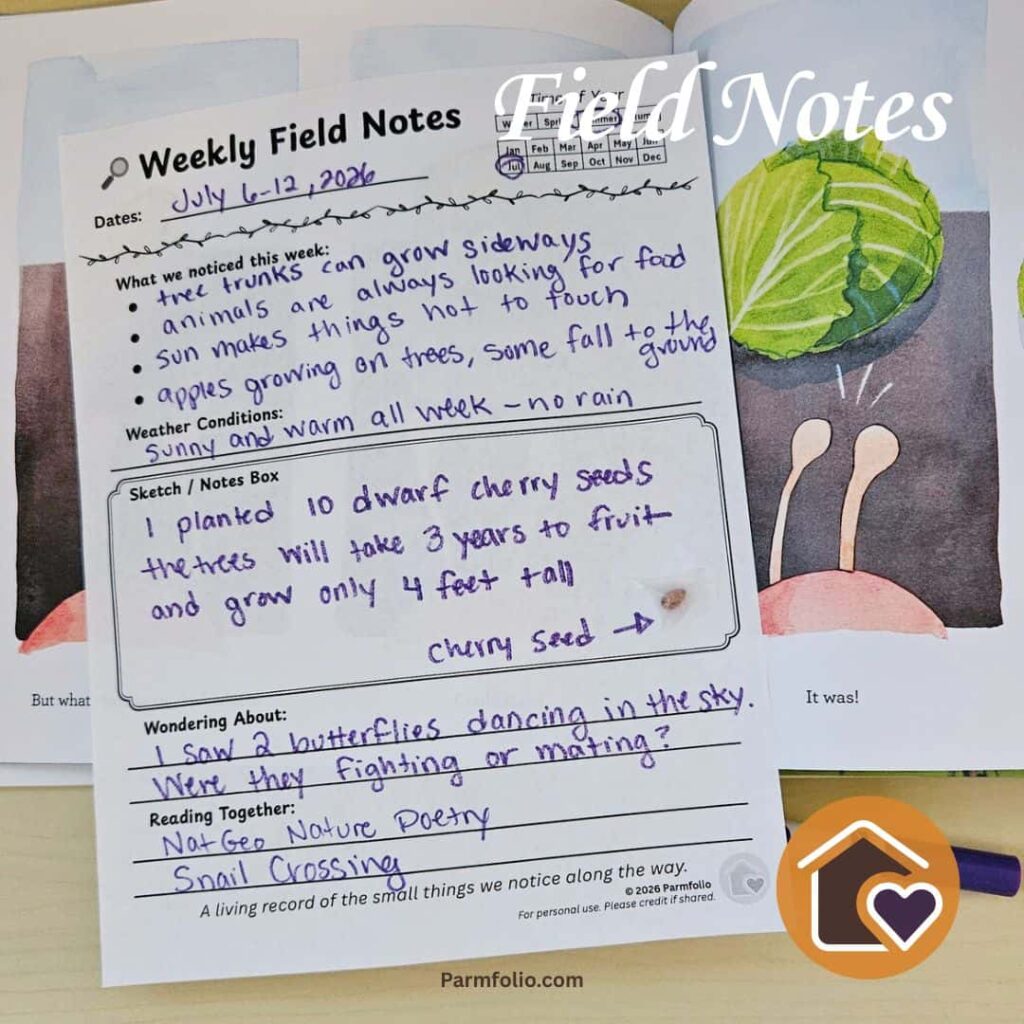 Field Notes
Time of Year
Summer
Jan Feb Mar Apr May Jun
Jul Aug Sep Oct Nov Dec
Weekly Field Notes
Dates: July 6-12, 2026
What we noticed this week:
• tree trunks can grow sideways
• animals are always looking for food
• sun makes things hot to touch
• apples growing on trees, some fall to the
ground
Weather Conditions:
sunny and warm all week - no rain
Sketch / Notes Box
I planted 10 dwarf cherry seeds
the trees will take 3 years to fruit
and grow only 4 feet tall
cherry seed →
Wondering About:
I saw 2 butterflies dancing in the sky.
Were they fighting or mating?
Reading Together:
NatGeo Nature Poetry
Snail Crossing
A living record of the small things we notice along the way.
© 2026 Parmfolio
For personal use. Please credit if shared.
But what
It was!
Parmfolio.com